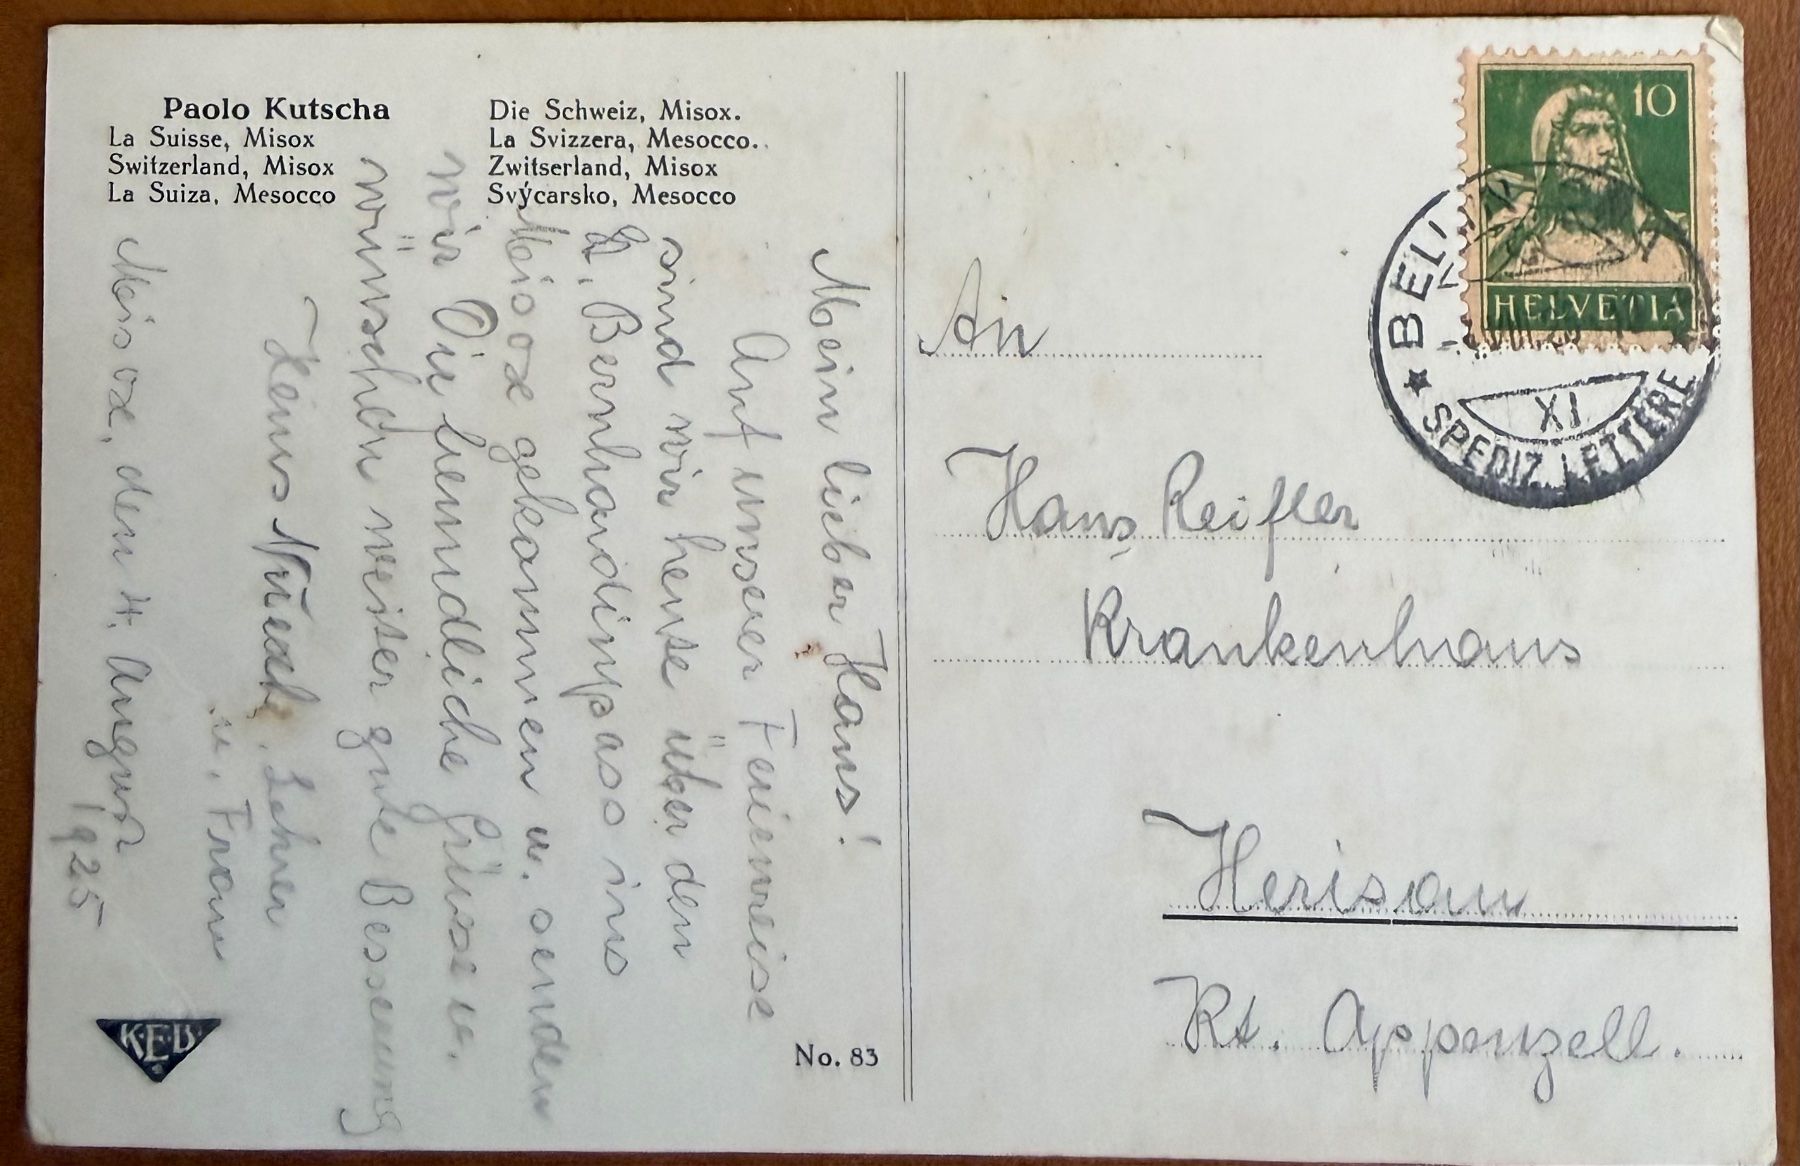 Paolo Kutscha
La Suisse, Misox
Switzerland, Misox
La Suiza, Mesocco
Die Schweiz, Misox.
La Svizzera, Mesocco.
Zwitserland, Misox
Svýcarsko, Mesocco
Mein lieber Hans!
Auf unserer Ferienreise
sind wir heute über den
St. Bernhardinpass ins
Misox gekommen u. senden
wir Dir freundliche Grüsse u.
wünschen weiter gute Besserung
Lehrer
u. Frau
Misox, den 4. August
1925
KEB
No. 83
10
HELVETIA
BELL
XI
SPEDIZ. LETTERE
An
Hans Reifler
Krankenhaus
Herisau
Kt. Appenzell.